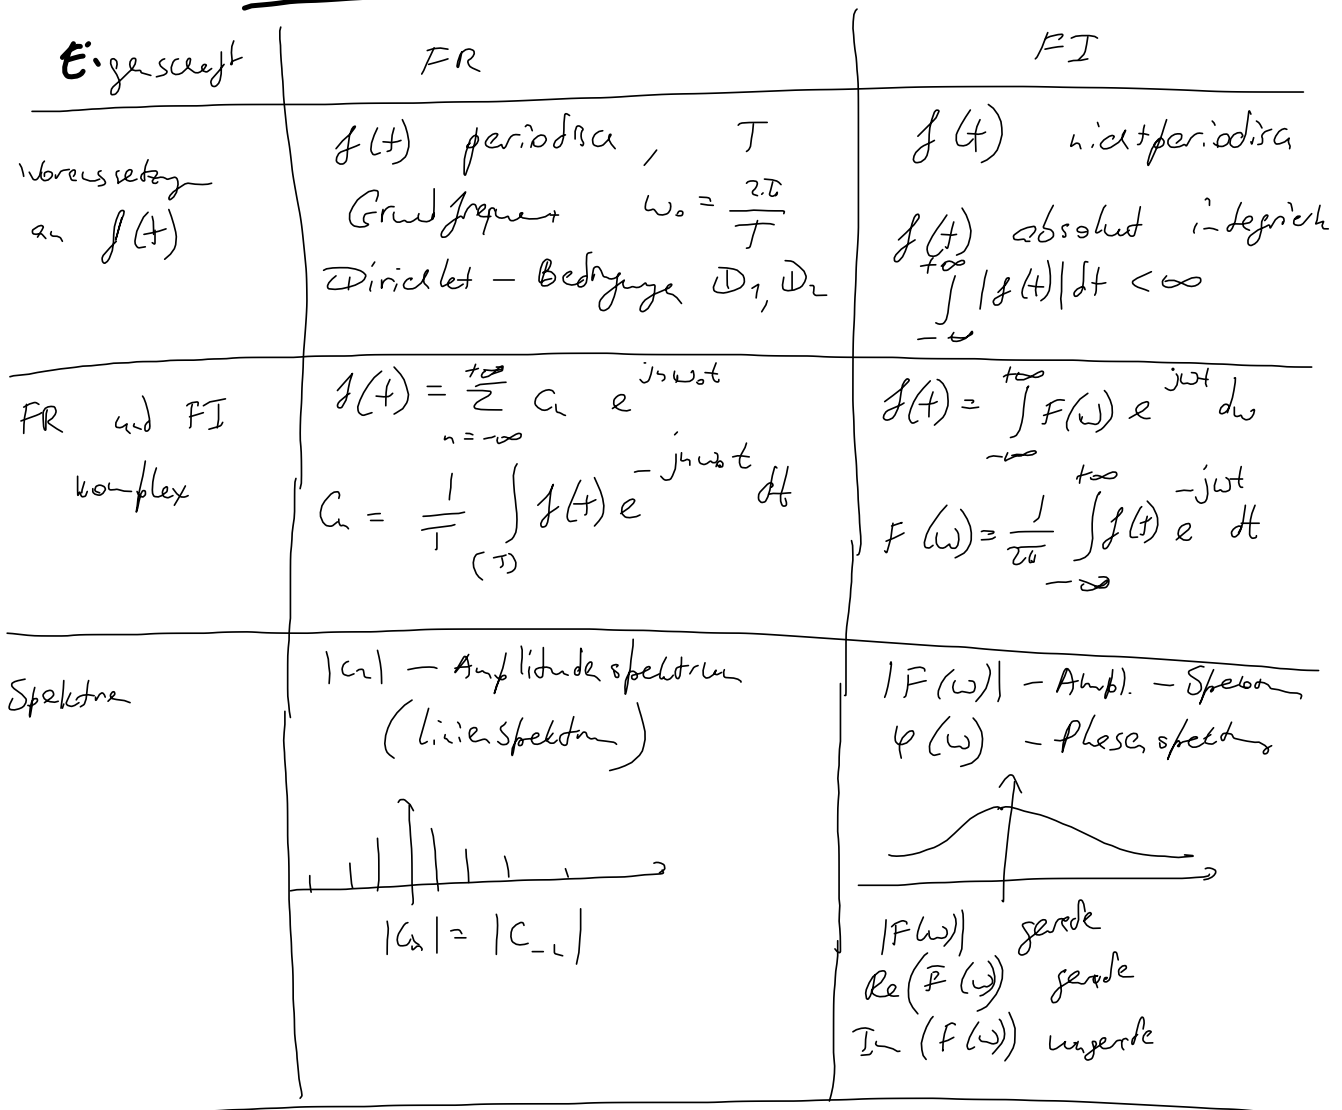 Eigenschaft FR FI
Voraussetzung an f(t)
f(t) periodisch, T
Grundfrequenz ω₀ = 2π/T
Dirichlet – Bedingungen D₁, D₂
f(t) nichtperiodisch
f(t) absolut integrierb
∫_{-∞}^{+∞} |f(t)| dt < ∞
FR und FI
komplex
f(t) = Σ_{n=-∞}^{+∞} Cₙ e^{jnω₀t}
Cₙ = 1/T ∫_{(T)} f(t) e^{-jnω₀t} dt
f(t) = ∫_{-∞}^{+∞} F(ω) e^{jωt} dω
F(ω) = 1/2π ∫_{-∞}^{+∞} f(t) e^{-jωt} dt
Spektren
|Cₙ| – Amplitudenspektrum
(Linienspektrum)
|Cₙ| = |C₋ₙ|
|F(ω)| – Ampl. – Spektrum
φ(ω) – Phasenspektrum
|F(ω)| gerade
Re(F(ω)) gerade
Im(F(ω)) ungerade